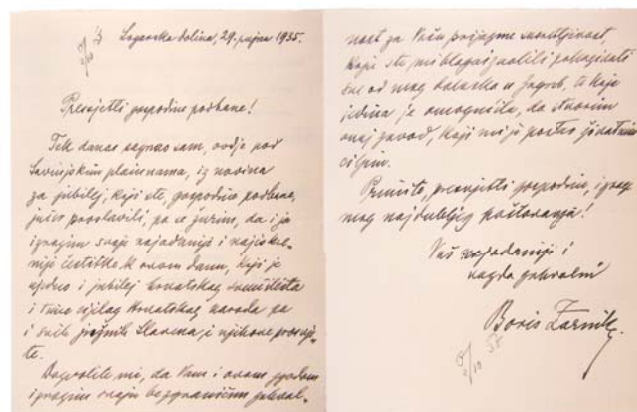 Logarska dolina, 29. rujna 1935.
Presvjetli gospodine podbane!
Tek danas saznao sam, ovdje pod
Savinjskim planinama, iz novina
za jubilej, koji ste, gospodine podbane,
jučer proslavili, pa se žurim, da i ja
izrazim svoje najodanije i najiskre-
nije čestitke k ovom danu, koji je
ujedno i jubilej hrvatskog sveučilišta
i time cijelog hrvatskog naroda pa
i svih južnih Slavena i njihove prosvje-
te.
Dozvolite mi, da Vam i ovom zgodom
izrazim svoju bezgraničnu zahval-
nost za Vašu susretljivost,
koju ste mi blagoizvolili pokazivati
sve od mog dolaska u Zagreb, te koja
jedina je omogućila, da stvorim
onaj zavod, koji mi je postao životnim
ciljem.
Primite, presvjetli gospodine, izraze
mog najdubljeg poštovanja!
Vaš najodaniji i
vazda zahvalni
Boris Zarnik